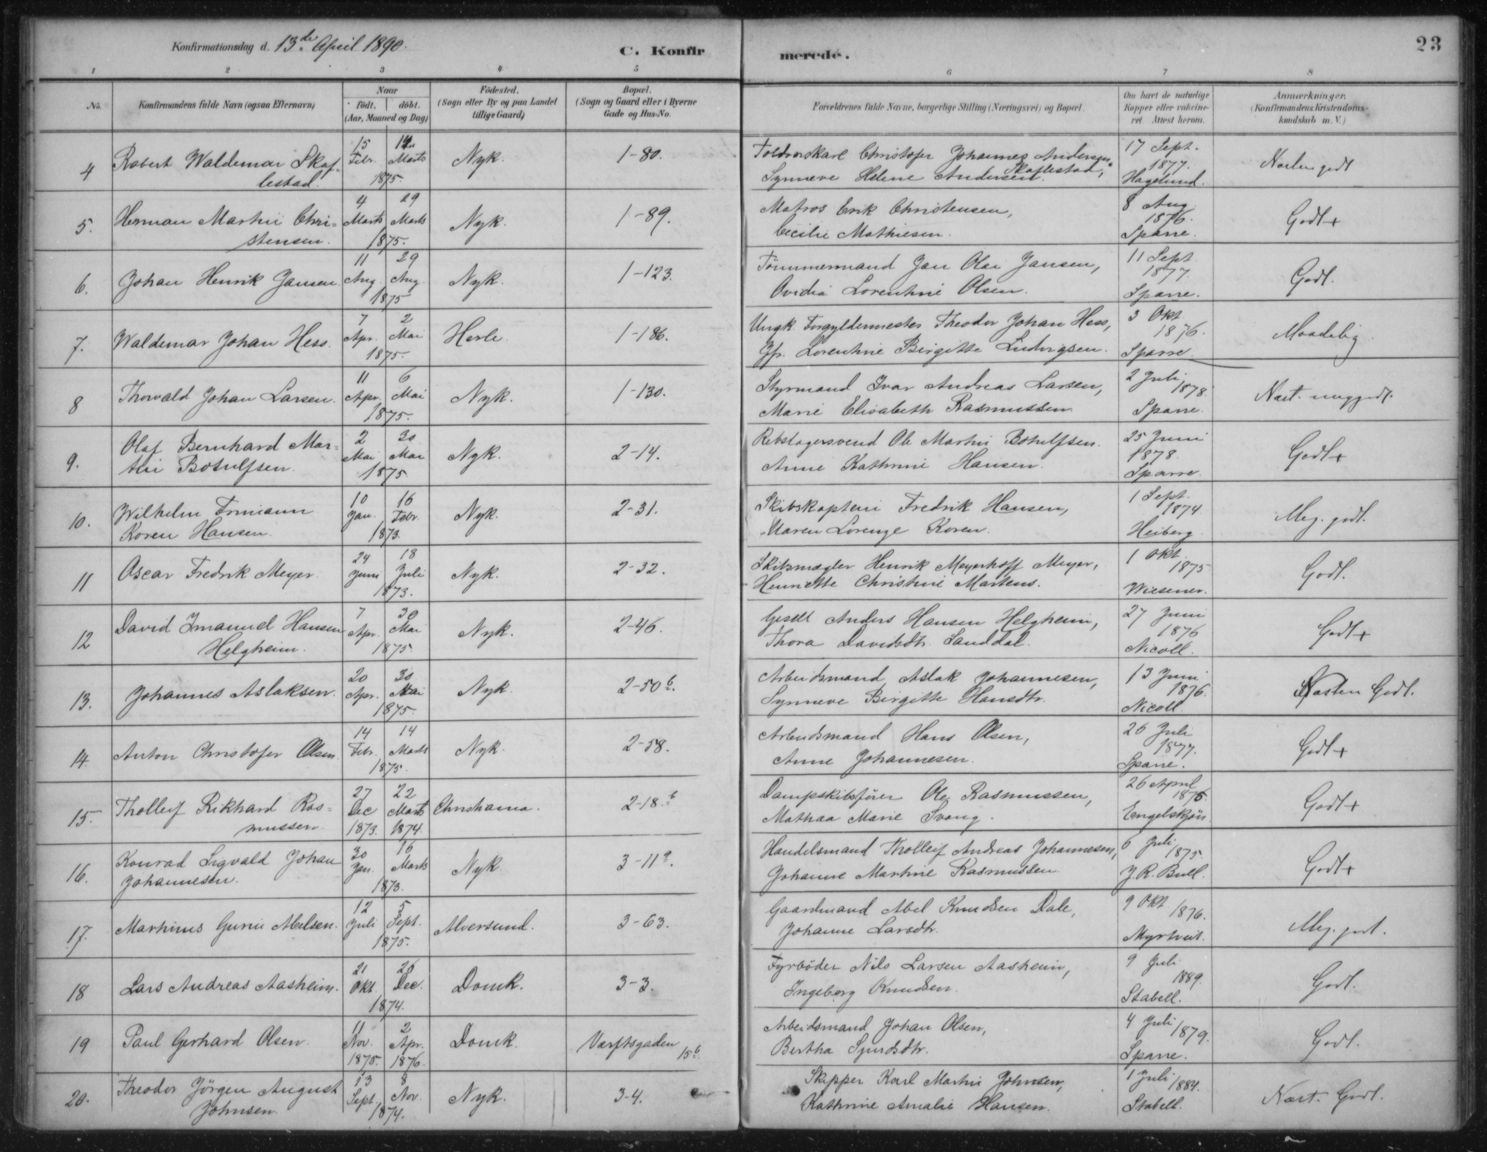 Konfirmationsdag d. 13de April 1890.
C. Konfirmerede.
23
1 2 3 4 5 6 7 8
No.
Konfirmandens fulde Navn (ogsaa Efternavn)
Naar
født. døbt.
(Aar, Maaned og Dag)
Fødested.
(Sogn eller By og paa Landet
tillige Gaard)
Bopæl.
(Sogn og Gaard eller i Byerne
Gade og Hus-No.
Forældrenes fulde Navne, borgerlige Stilling (Næringsvei) og Bopæl.
Om havt de naturlige
Kopper eller vaksine-
ret Attest herom.
Anmærkninger.
(Konfirmandens Kristendoms-
kundskab m. V.)
4 Robert Waldemar Skaf-
lestad. 15 Febr. 14 Marts 1875 Nyk. 1-80. Toldrorskarl Christofer Johannes Andersen
Skaflestad,
Synneve Helene Andersen. 17 Sept. 1877. Hagelund. Næsten godt
5. Herman Martin Chri-
stensen. 4 Marts 29 Marts 1875. Nyk. 1-89. Matros Erik Christensen,
Cecilie Mathiesen. 8 Aug 1876. Sparre. Godt+
6. Johan Henrik Jansen 11 Aug 29 Aug 1875 Nyk. 1-123. Tømmermand Jan Olai Jansen,
Ovidia Lorentine Olsen. 11 Sept 1877 Sparre. Godt.
7. Waldemar Johan Hess. 7 Apr. 2 Mai 1875 Herle 1-186. Ungk. Forgyldermester Theodor Johan Hess,
Jfr. Lorentine Birgitte Ludvigsen. 3 Okt 1876. Sparre Maadelig.
8 Thorvald Johan Larsen. 11 Apr. 6 Mai 1875. Nyk. 1-130. Styrmand Ivar Andreas Larsen,
Marie Elisabeth Rasmussen 2 Juli 1878. Sparre. Næst. meg godt.
9. Olaf Bernhard Mar-
tin Botulfsen. 2 Mai 30 Mai 1875 Nyk. 2-14. Rebslagersvend Ole Martin Botulfsen.
Anne Kathrine Hansen. 25 Juni 1878. Sparre. Godt+
10. Wilhelm Ermann
Koren Hansen. 10 Jan. 16 Febr. 1873. Nyk. 2-31. Skibskaptein Fredrik Hansen,
Maren Lorenze Koren. 1 Sept. 1874. Heiberg. Meg. godt.
11 Oscar Fredrik Meyer. 24 Juni 18 Juli 1873. Nyk. 2-32. Skibsmægler Henrik Meyerhoff Meyer,
Henriette Christine Martens. 1 Okt. 1875 Wiesener. Godt.
12 David Imanuel Hansen
Helgheim. 7 Apr. 30 Mai 1875 Nyk. 2-46. Gesell Anders Hansen Helgheim,
Thora Davidsdtr. Sanddal. 27 Juni 1876 Nicoll. Godt+
13. Johannes Aslaksen. 20 Apr. 30 Mai 1875. Nyk. 2-50b. Arbeidsmand Aslak Johannesen,
Synneve Birgitte Hansdtr. 13 Juni 1876. Nicoll Næsten Godt.
14. Anton Christofer Olsen 14 Febr. 14 Marts 1875. Nyk. 2-58. Arbeidsmand Hans Olsen,
Anne Johannesen. 26 Juli 1877. Sparre. Godt+
15. Tholleif Rikhard Ras-
mussen. 27 Dec 1873. 22 Marts 1874. Christiania. 2-18b Dampskibsfører Ole Rasmussen,
Mathea Marie Svang. 26 April 1875. Engelskjøn Godt+
16. Konrad Sigvald Johan
Johannesen. 30 Jan. 16 Marts 1873. Nyk. 3-11a. Handelsmand Tholleif Andreas Johannesen,
Johanne Martine Rasmussen 6 Juli 1875. J. R. Bull. Godt+
17. Martinus Gurin Abelsen. 12 Juli 5 Sept. 1875. Alversund. 3-63. Gaardmand Abel Knudsen Dale,
Johanne Larsdtr. 9 Okt 1876. Myrtveit. Meg. godt.
18 Lars Andreas Aasheim. 21 Okt 26 Dec. 1874. Domk. 3-3 Fyrbøder Nils Larsen Aasheim,
Ingeborg Knudsen. 9 Juli 1889. Stabell. Godt.
19 Paul Gerhard Olsen. 11 Nov. 1875. 2 Apr. 1876 Domk. Værftsgaden 15b. Arbeidsmand Johan Olsen,
Bertha Sjursdtr. 4 Juli 1879. Sparre. Godt.
20. Theodor Jörgen August
Johnsen 13 Sept. 8 Nov. 1874. Nyk. 3-4. Skipper Karl Martin Johnsen,
Kathrine Amalie Hansen. 1 Juli 1884. Stabell. Næst. Godt.